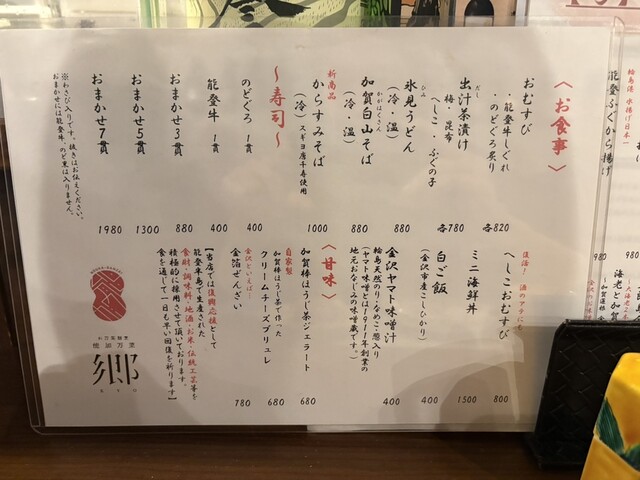 〈お食事〉
おむすび
・能登牛しぐれ
・のどぐろ炙り
各820
出汁茶漬け
だし
梅・昆布
へしこ・ふぐの子
各780
氷見うどん
ひみ
(冷・温)
880
加賀白山そば
かがはくさん
(冷・温)
880
新商品
からすみそば
(冷) スギヨ唐千寿使用
1000
〜寿司〜
のどぐろ 1貫
400
能登牛 1貫
400
おまかせ3貫
880
おまかせ5貫
1300
おまかせ7貫
1980
※わさび入りです。抜きはお伝えください。
おまかせには能登牛、のど黒は入りません。
復活!酒のアテにも
へしこおむすび
800
ミニ海鮮丼
1500
白ご飯
(金沢市産こしひかり)
400
金沢ヤマト味噌汁
輪島天然のりとなめこ憩入り
(ヤマト味噌とは1911年創業の
地元おなじみの味噌蔵です。)
400
〈甘味〉
加賀棒ほうじ茶ジェラート
680
自家製
加賀棒ほうじ茶で作った
クリームチーズブリュレ
680
金沢といえば…
金箔ぜんざい
780
【当店では復興応援として
能登半島で生産された
食材・調味料・地酒・お米・伝統工芸等を
積極的に採用させて頂いております。
食を通して一日も早い回復を祈ります】
郷
KYO
輪島港 水揚げ日本一
能登ふぐから揚げ
980
海老と加賀
980